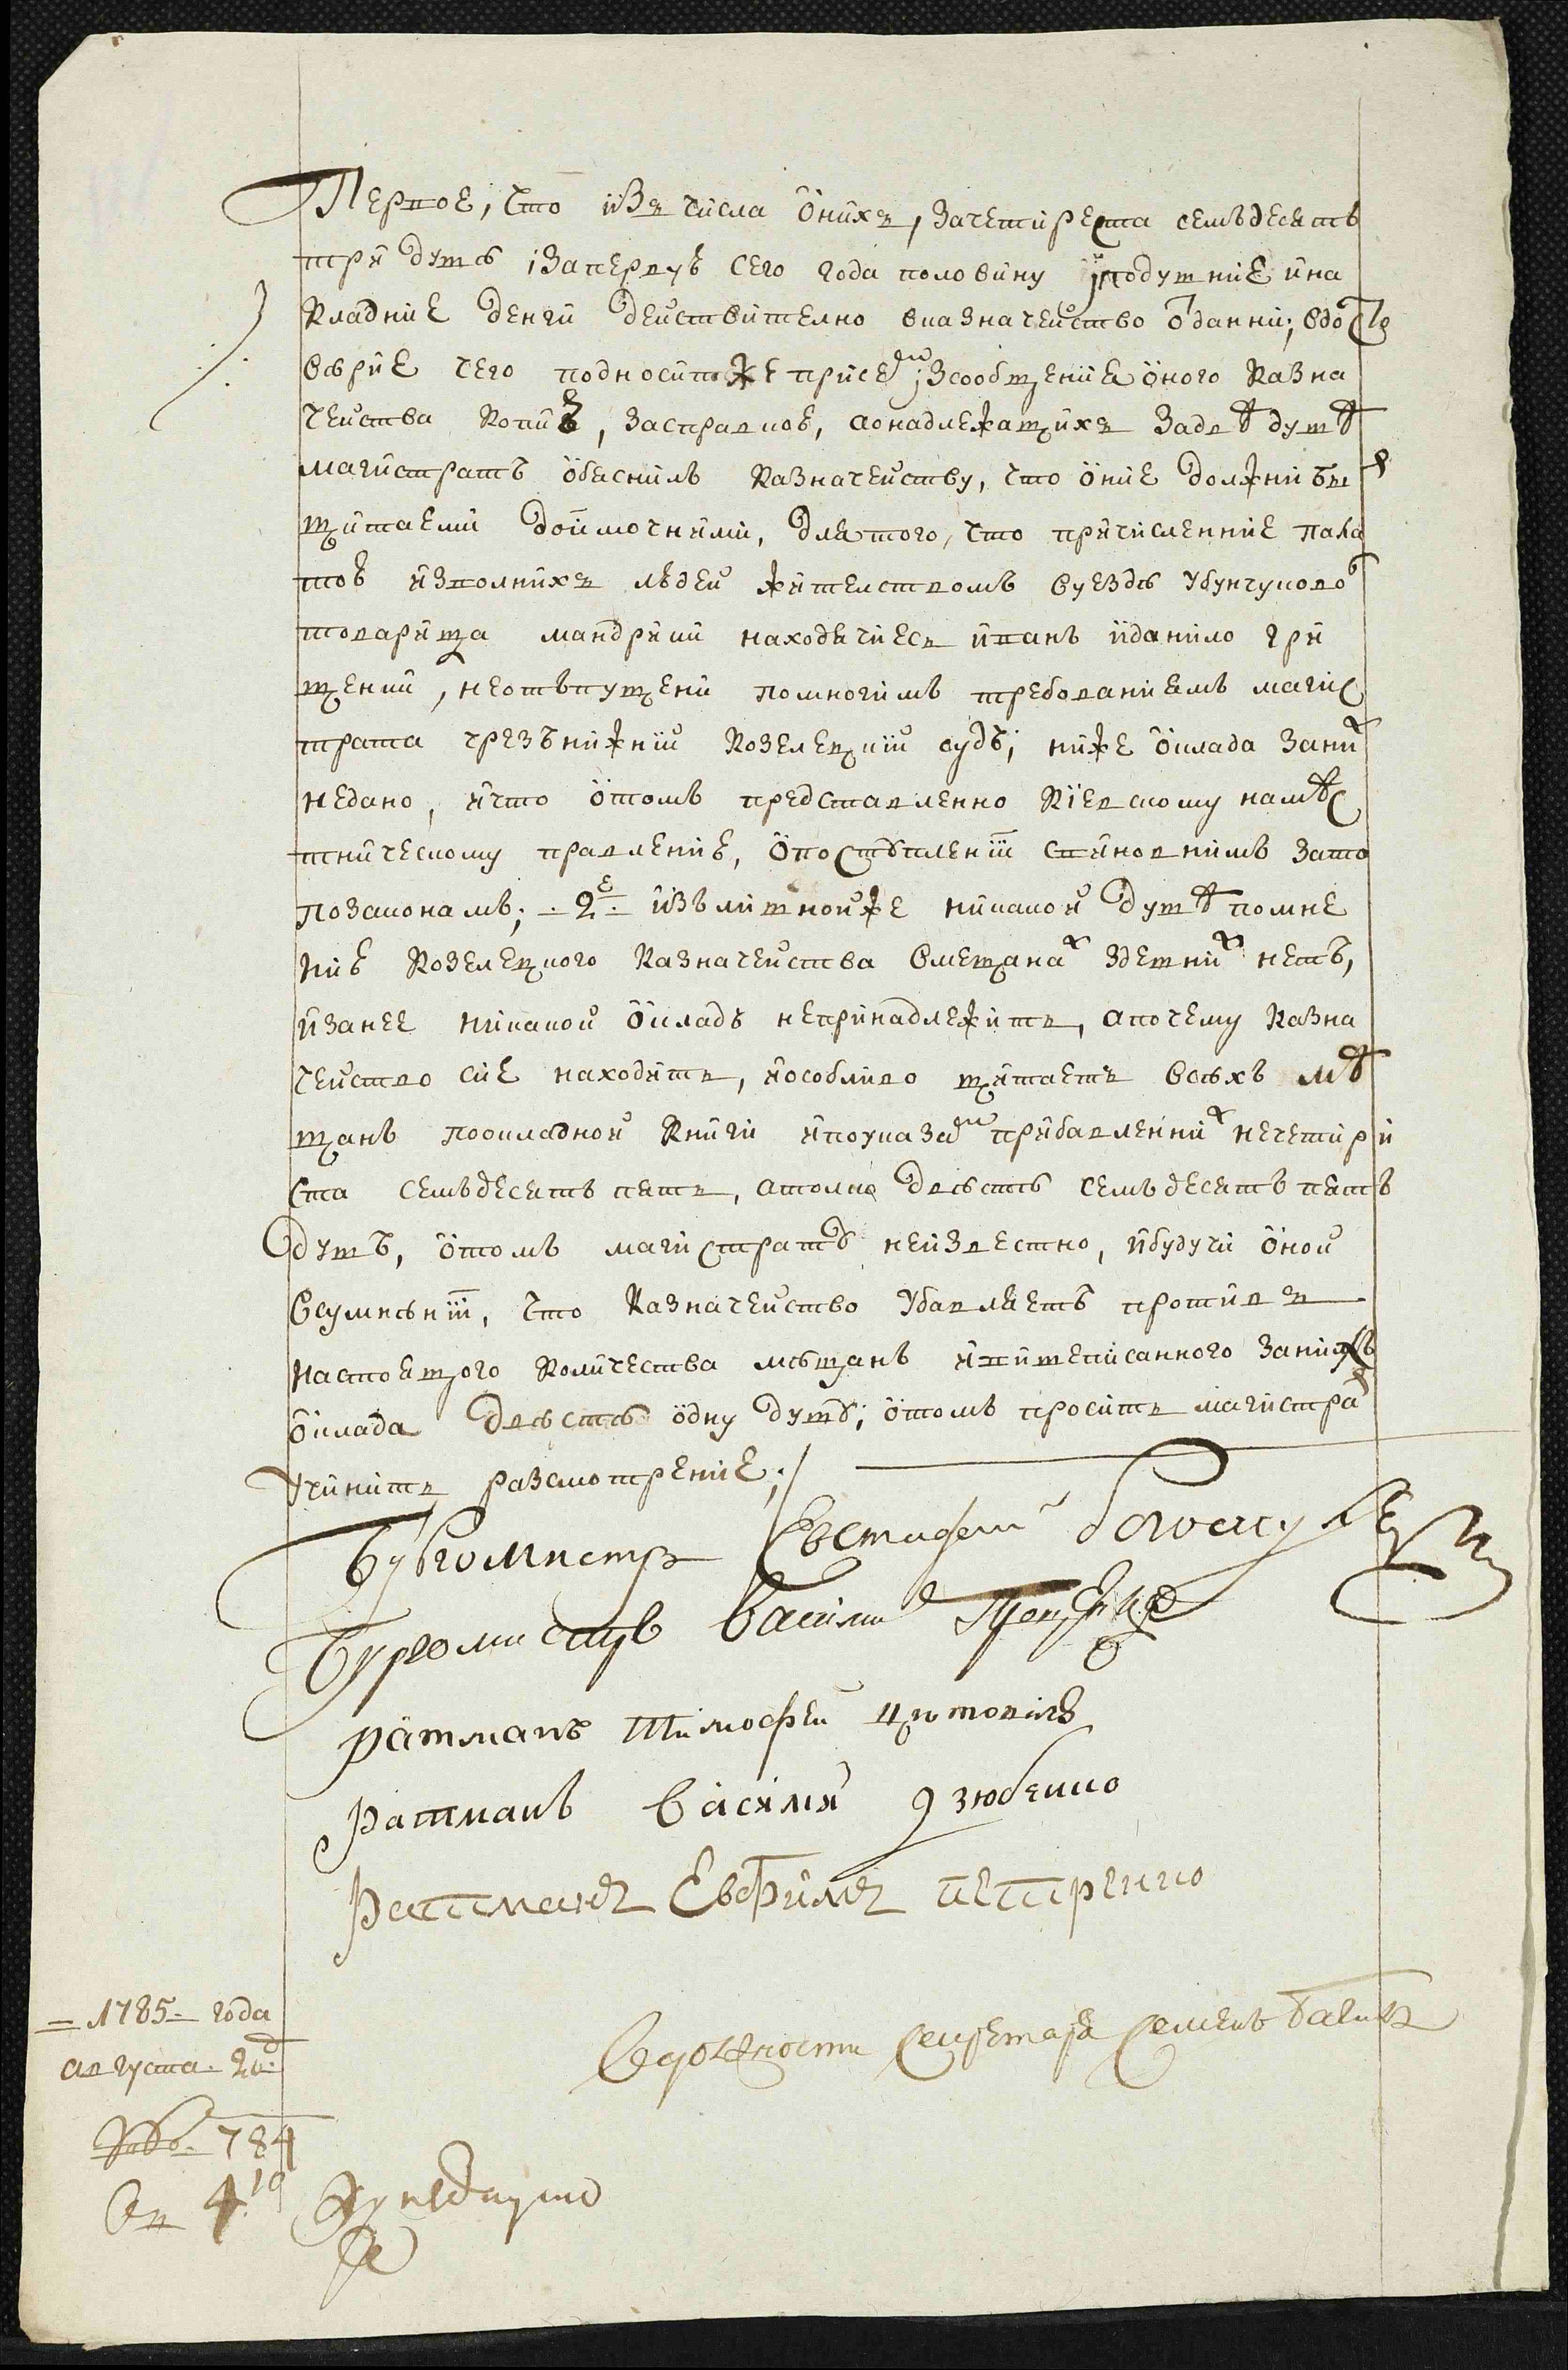 Первое, что изъ числа онихъ, зачетиреста семъдесятъ
три душѣ изапервую сего года половину подушние ина
кладние денги действително вказначейство отданни; вдосто
вѣрие чего подноситъ же присемъ изсообщения оного казна
чейства копию, засправкою, аонадлежащихъ задвѣ душѣ
магистратъ обяснилъ казначейству, что ение должни быть
щитаеми доимочними, для того, что причисленние пала
тою изполнихъ людей жителствомъ вуездѣ убунчуково
товарища мандрики находячиесь иванъ иданило гри
щенки, неотъпущени помногимъ требованиямъ магис
трата чрезънижний козелецкий судъ; ниже оклада заних
недано, ичто отомъ представленно киевскому намѣс
тническому правлению, опоступлении свиновнимъ зато
позаконамъ; 2е излишной же никакой душѣ помне
нию козелецкого казначейства вмещанах здешних нетъ,
изанее никакой окладъ непринадлежитъ, апочему казна
чейство сие находитъ, иособливо щитаетъ всѣхъ мѣ
щанъ поокладной книги ипоуказам прибавленних нечетири
ста семъдесятъ пятъ, атолко двѣстѣ семъдесятъ пятъ
душъ, отомъ магистрату неизвестно, ибудучи оной
всумнѣнии, что казначейство убавляетъ противъ
настоящого количества мѣщанъ ивишеписанного занихъ
оклада двѣстѣ одну душу; отомъ проситъ магистрат
учинитъ разсмотрение;
Бургомистръ Евстафий
Бургомистръ Василий
Ратманъ Тимофей
Ратманъ Василий Дзюбенко
Ратманъ Евфимъ Петренко
Вдолжности секретара Семенъ
1785 года
августа 20 д
784